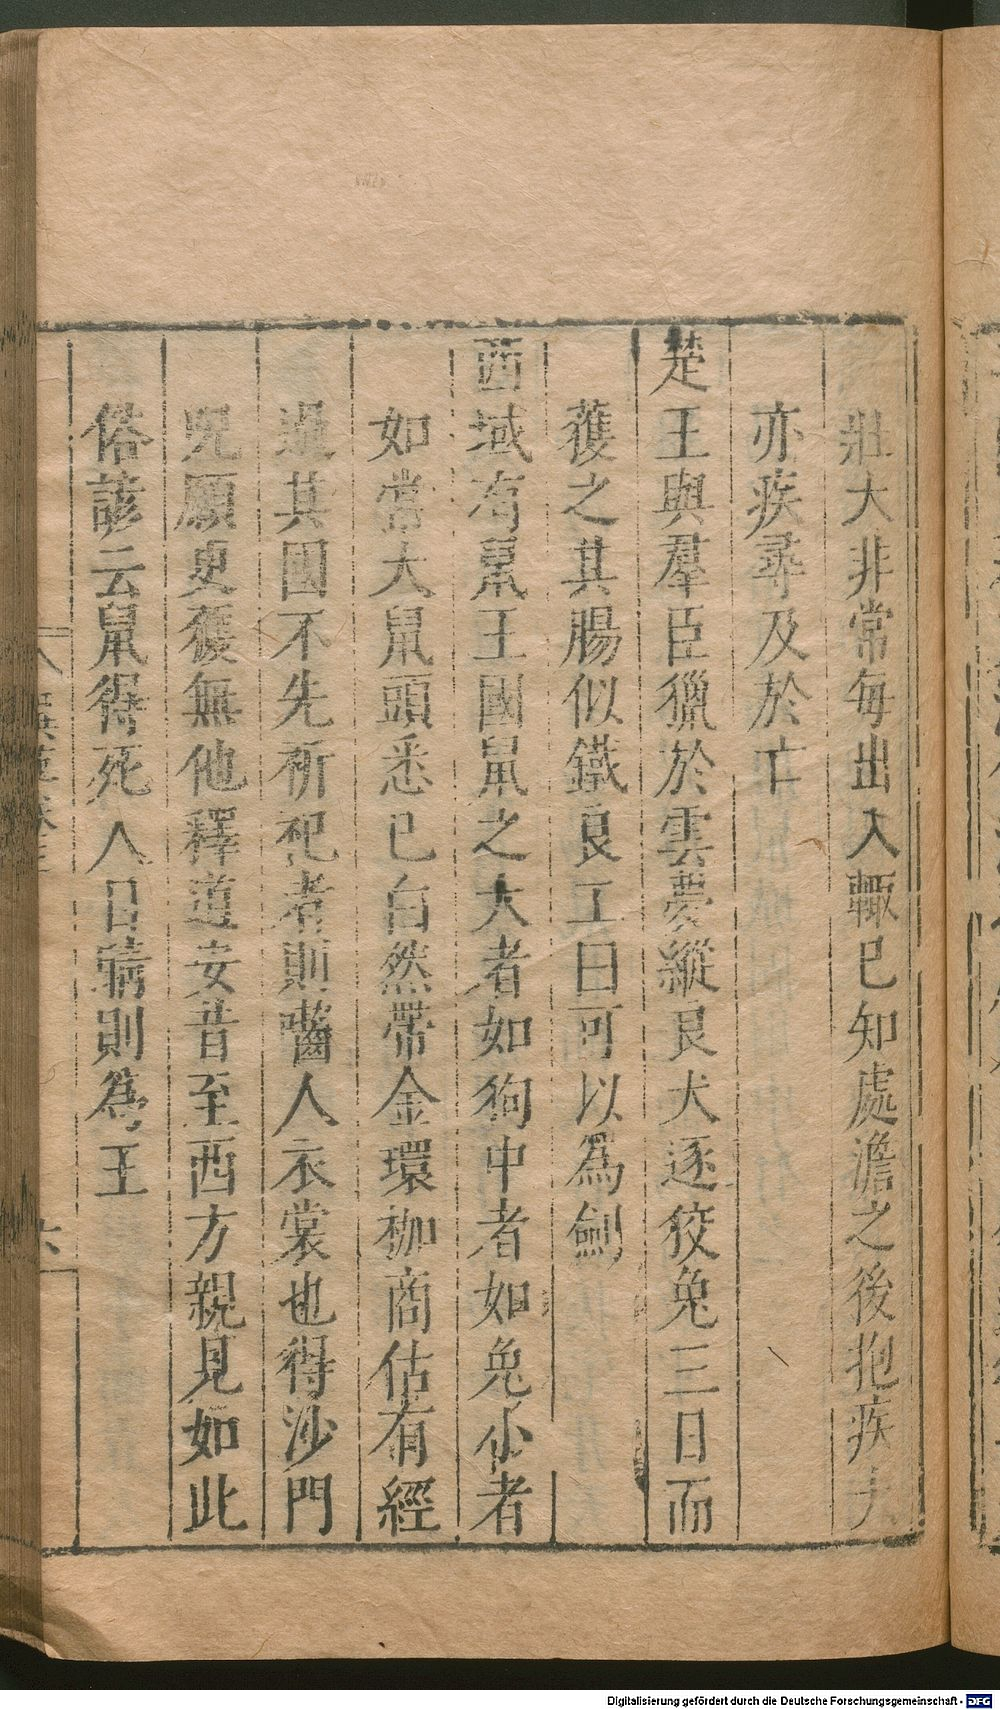 壯大非常每出入輒已知處澹之後抱疾
亦疾尋及於亡
楚王與羣臣獵於雲夢縱良犬逐狡兔三日而
獲之其腸似鐵良工曰可以爲劍
西域有鼠王國鼠之大者如狗中者如兔小者
如常大鼠頭悉已白然帶金環枷商估有經
過其國不先祈祀者則嚙人衣裳也得沙門
咒願更獲無他釋道安昔至西方親見如此
俗諺云鼠得死人目睛則為王
六
Digitalisierung gefördert durch die Deutsche Forschungsgemeinschaft - DFG